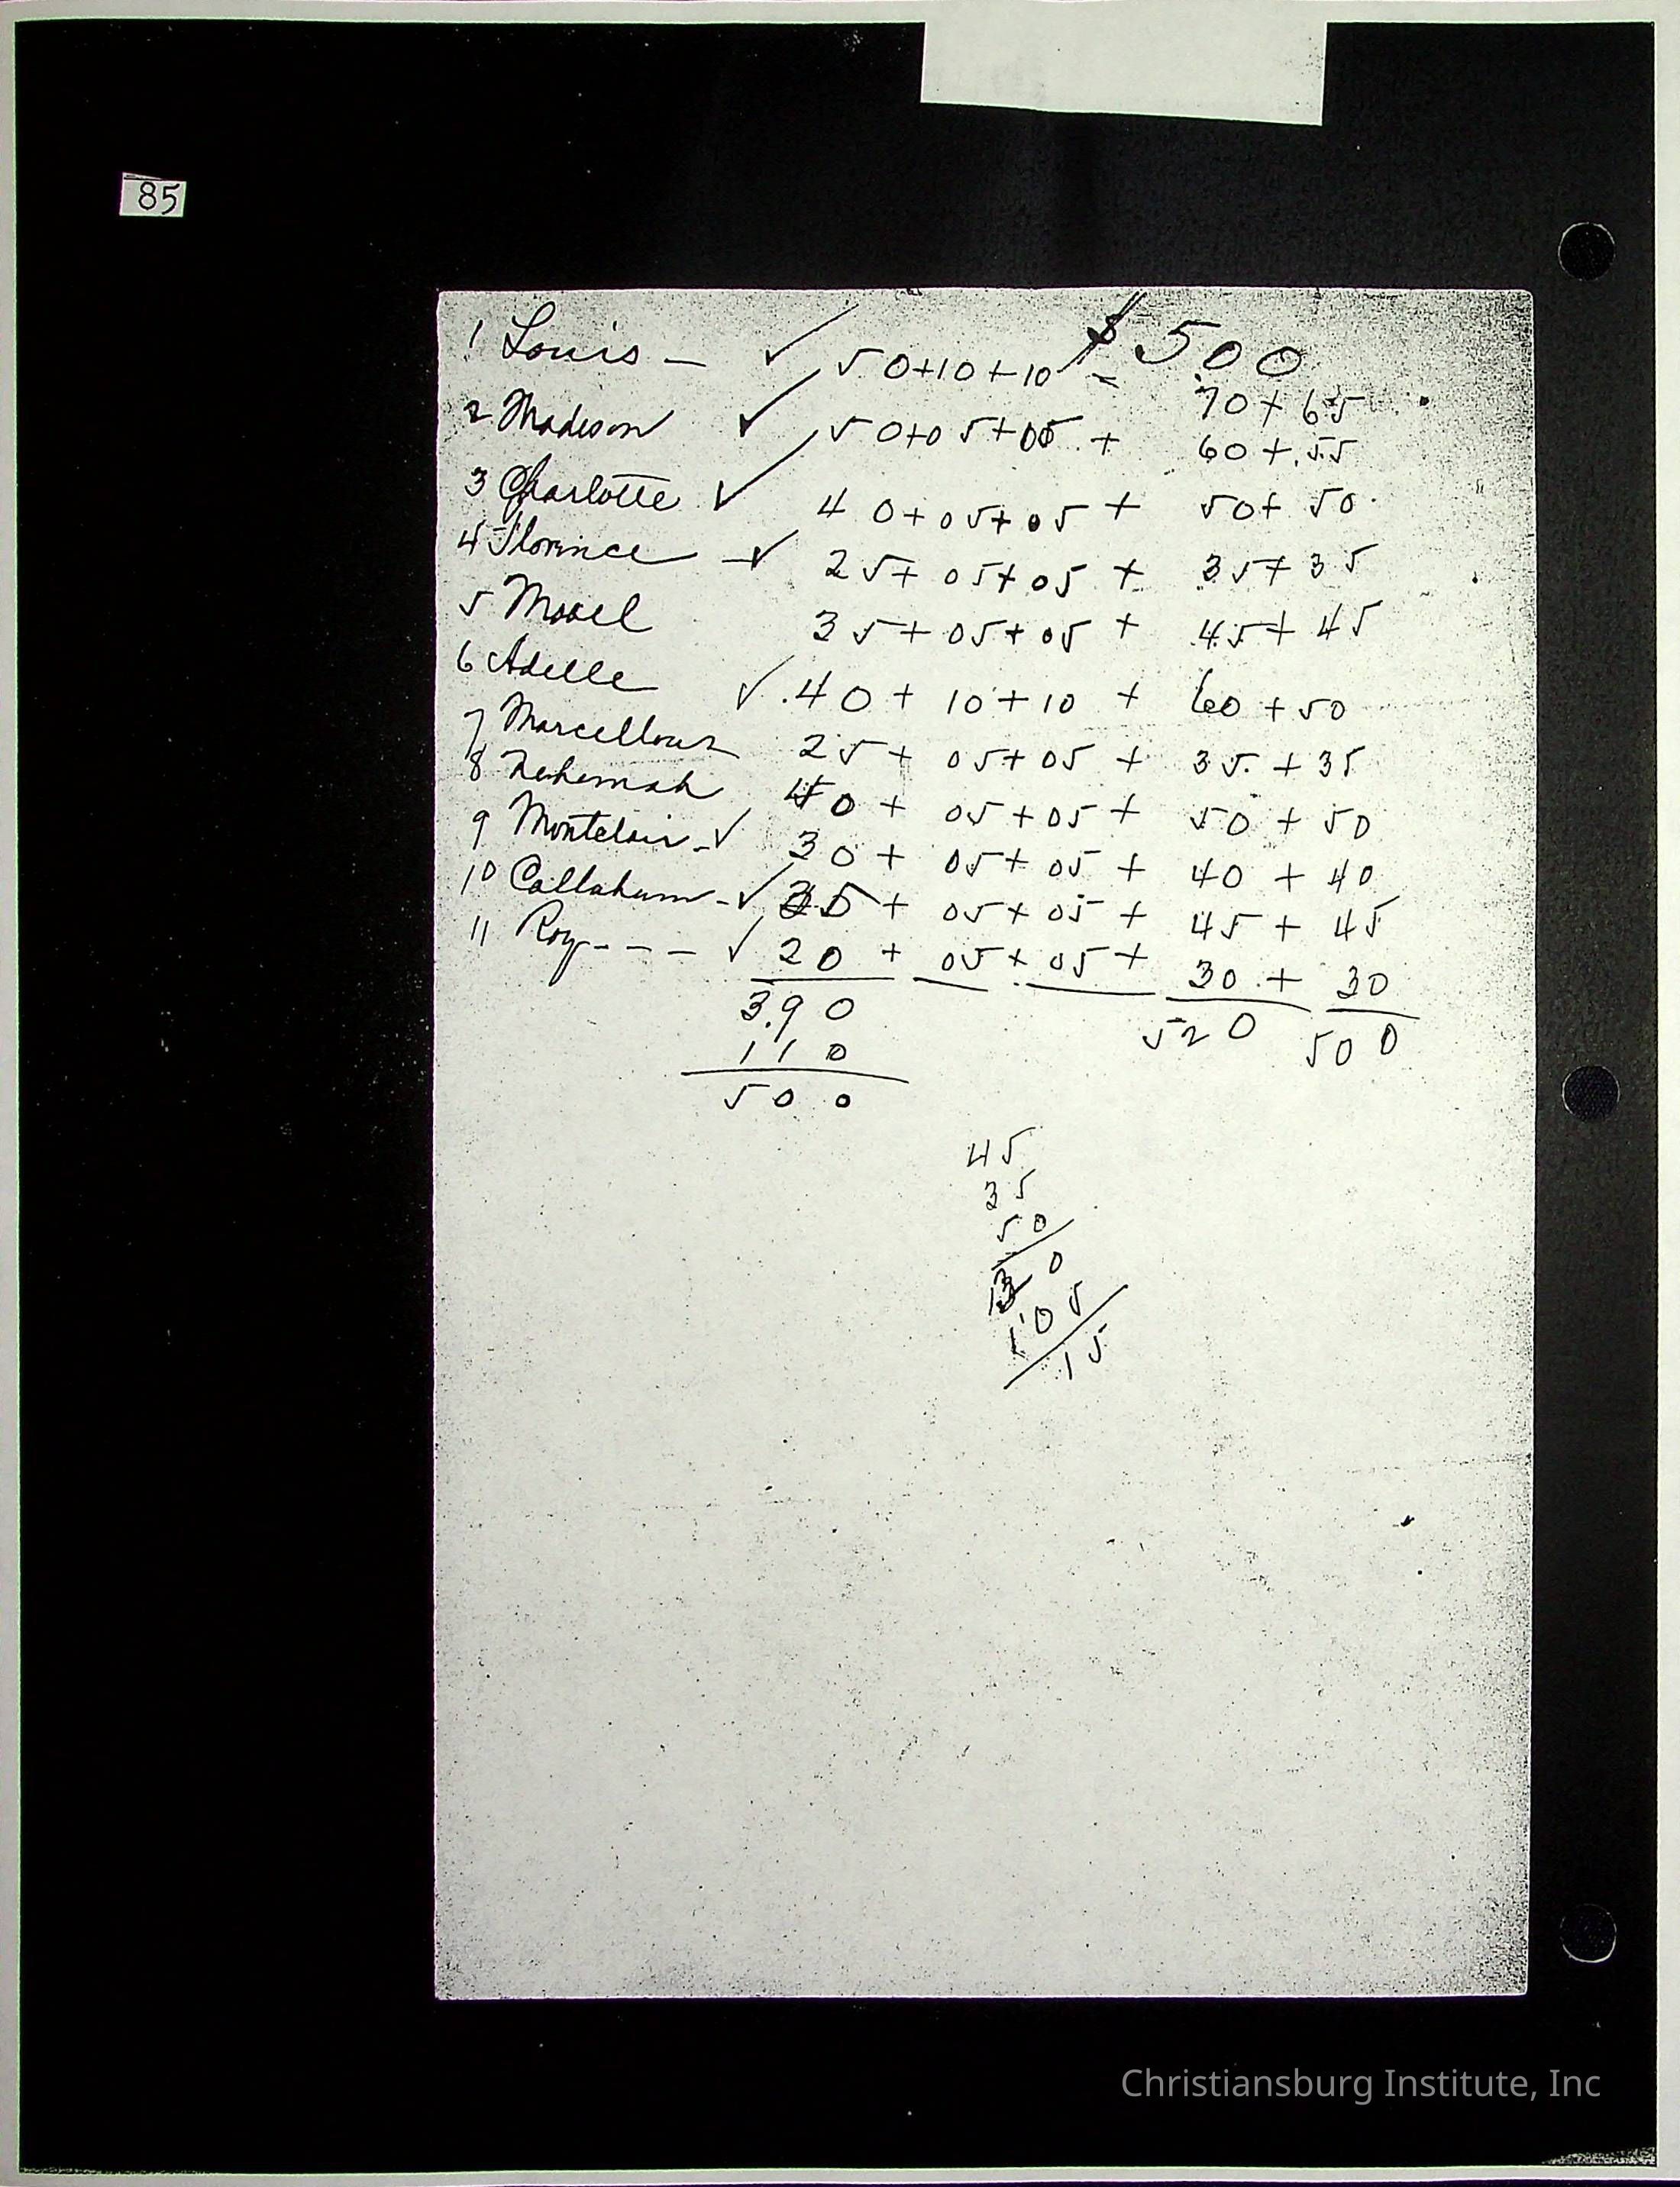 85
$500
1 Louis – ✓ 50+10+10 – 70+65
2 Madison ✓ 50+05+05 + 60+.55
3 Charlotte ✓ 40+05+05 + 50+50
4 Florince – ✓ 25+05+05 + 35+35
5 Mosel 35+05+05 + 45+45
6 Adelle ✓ .40+10+10 + 60+50
7 Marcellous 25+05+05 + 35+35
8 Nehemah 40+05+05 + 50+50
9 Montclair – ✓ 30+05+05 + 40+40
10 Callahum – ✓ 35+05+05 + 45+45
11 Roy – – – ✓ 20+05+05 + 30+30
3.90 520 500
110
500
45
35
50
130
105
15
Christiansburg Institute, Inc